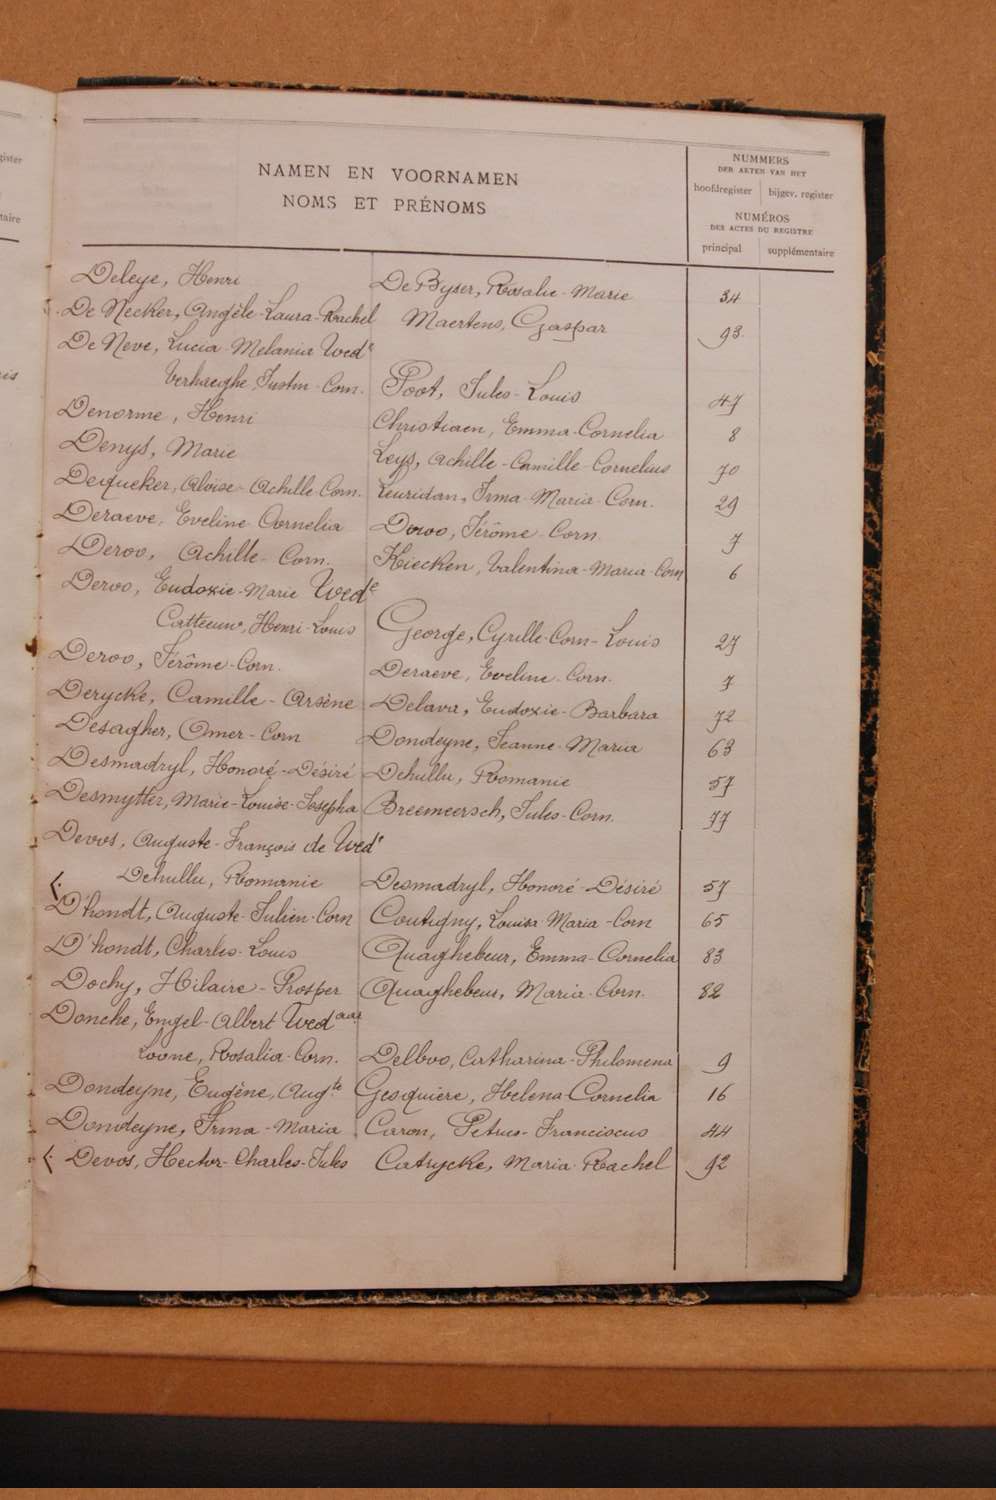 gister
taire
is
NAMEN EN VOORNAMEN
NOMS ET PRÉNOMS
NUMMERS
DER AKTEN VAN HET
hoofdregister bijgev. register
NUMÉROS
DES ACTES DU REGISTRE
principal supplémentaire
Deleye, Henri De Byser, Rosalie-Marie 34
De Necker, Angèle-Laura-Rachel Maertens, Gaspar 93.
De Neve, Lucia-Melania Wede
Verhaeghe, Justin-Corn. Poot, Jules-Louis 47
Denorme, Henri Christiaen, Emma-Cornelia 8
Denys, Marie Leys, Achille-Camille-Cornelius 70
Dequeker, Aloïse-Achille-Corn. Leuridan, Irma-Maria-Corn. 29
Deraeve, Eveline Cornelia Deroo, Jérôme-Corn. 7
Deroo, Achille-Corn. Kiecken, Valentina-Maria-Corn 6
Deroo, Eudoxie-Marie Wede
Catteeuw, Henri-Louis George, Cyrille-Corn-Louis 27
Deroo, Jérôme-Corn. Deraeve, Eveline-Corn. 7
Derycke, Camille-Arsène Delava, Eudoxie-Barbara 72
Desagher, Omer-Corn Dondeyne, Jeanne-Maria 63
Desmadryl, Honoré-Désiré Dehullu, Romanie 57
Desmytter, Marie-Louise-Josepha Breemeersch, Jules-Corn. 77
Devos, Auguste-François de Wede
Dehullu, Romanie Desmadryl, Honoré-Désiré 57
D'hondt, Auguste-Julien-Corn Coutigny, Louisa-Maria-Corn 65
D'hondt, Charles-Louis Quaghebeur, Emma-Cornelia 83
Dochy, Hilaire-Prosper Quaghebeur, Maria-Corn. 82
Donche, Engel-Albert Wedaar
Loone, Rosalia-Corn. Delboo, Catharina-Philomena 9
Dondeyne, Eugène, Augte Gesquiere, Helena-Cornelia 16
Dondeyne, Irma-Maria Caron, Petrus-Franciscus 44
Devos, Hector-Charles-Jules Catrycke, Maria-Rachel 92